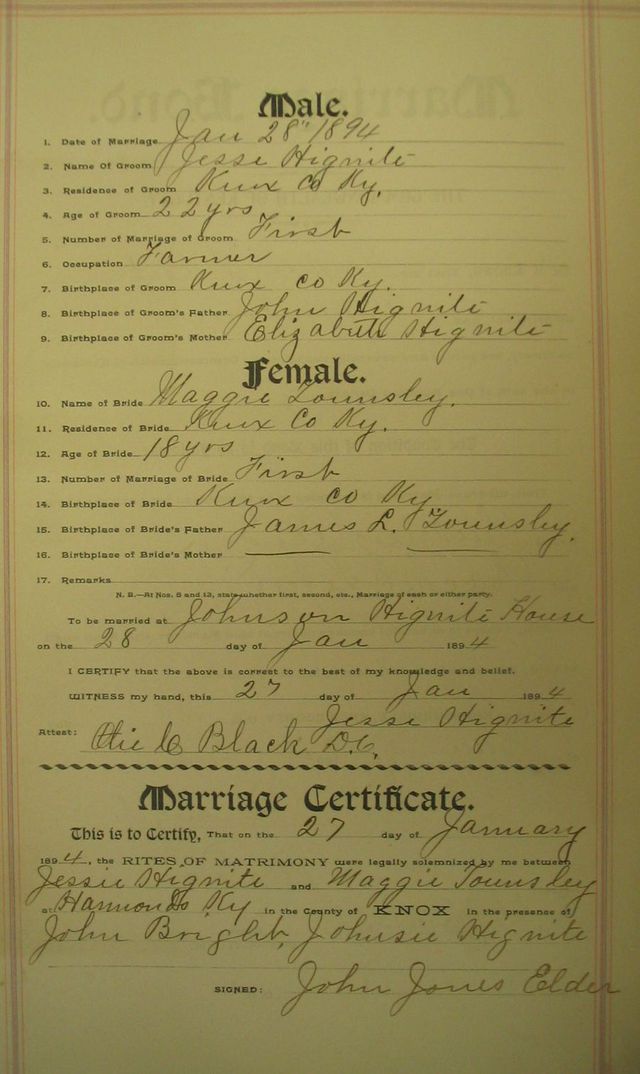 Male.
1. Date of Marriage Jan 28" 1894
2. Name Of Groom Jesse Hignite
3. Residence of Groom Knox Co Ky.
4. Age of Groom 22 yrs
5. Number of Marriage of Groom First
6. Occupation Farmer
7. Birthplace of Groom Knox Co Ky.
8. Birthplace of Groom's Father John Hignite
9. Birthplace of Groom's Mother Elizabeth Hignite
Female.
10. Name of Bride Maggie Tounsley.
11. Residence of Bride Knox Co Ky.
12. Age of Bride 18 yrs
13. Number of Marriage of Bride First
14. Birthplace of Bride Knox Co Ky
15. Birthplace of Bride's Father James L. Tounsley.
16. Birthplace of Bride's Mother
17. Remarks
N. B.—At Nos. 5 and 13, state whether first, second, etc., Marriage of each or either party.
To be married at Johnson Hignite House
on the 28 day of Jan 1894
I CERTIFY that the above is correct to the best of my knowledge and belief.
WITNESS my hand, this 27 day of Jan 1894
Jesse Hignite
Attest: Black D.C.
Marriage Certificate.
This is to Certify, That on the 27 day of January
1894, the RITES OF MATRIMONY were legally solemnized by me between
Jessie Hignite and Maggie Tounsley
at Ky in the County of KNOX in the presence of
John Bright, Johnsie Hignite
SIGNED: John Jones Elder